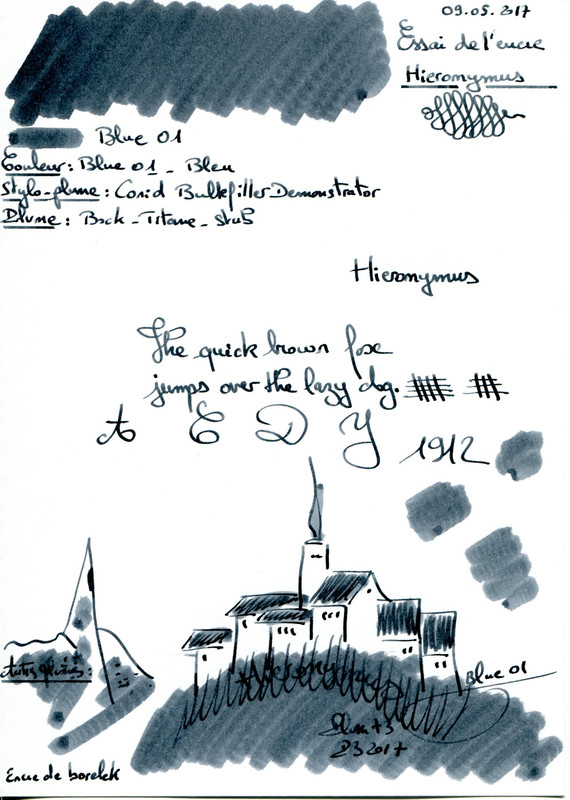 09.05.2017
Essai de l'encre
Hieronymus
Blue 01
Couleur: Blue 01 - Bleu
Stylo-plume: Conid Bulkfiller Demonstrator
Plume: Bock - Titane - Stub
Hieronymus
The quick brown fox
jumps over the lazy dog.
A E D Y 1912
Blue 01
2017
Encre de